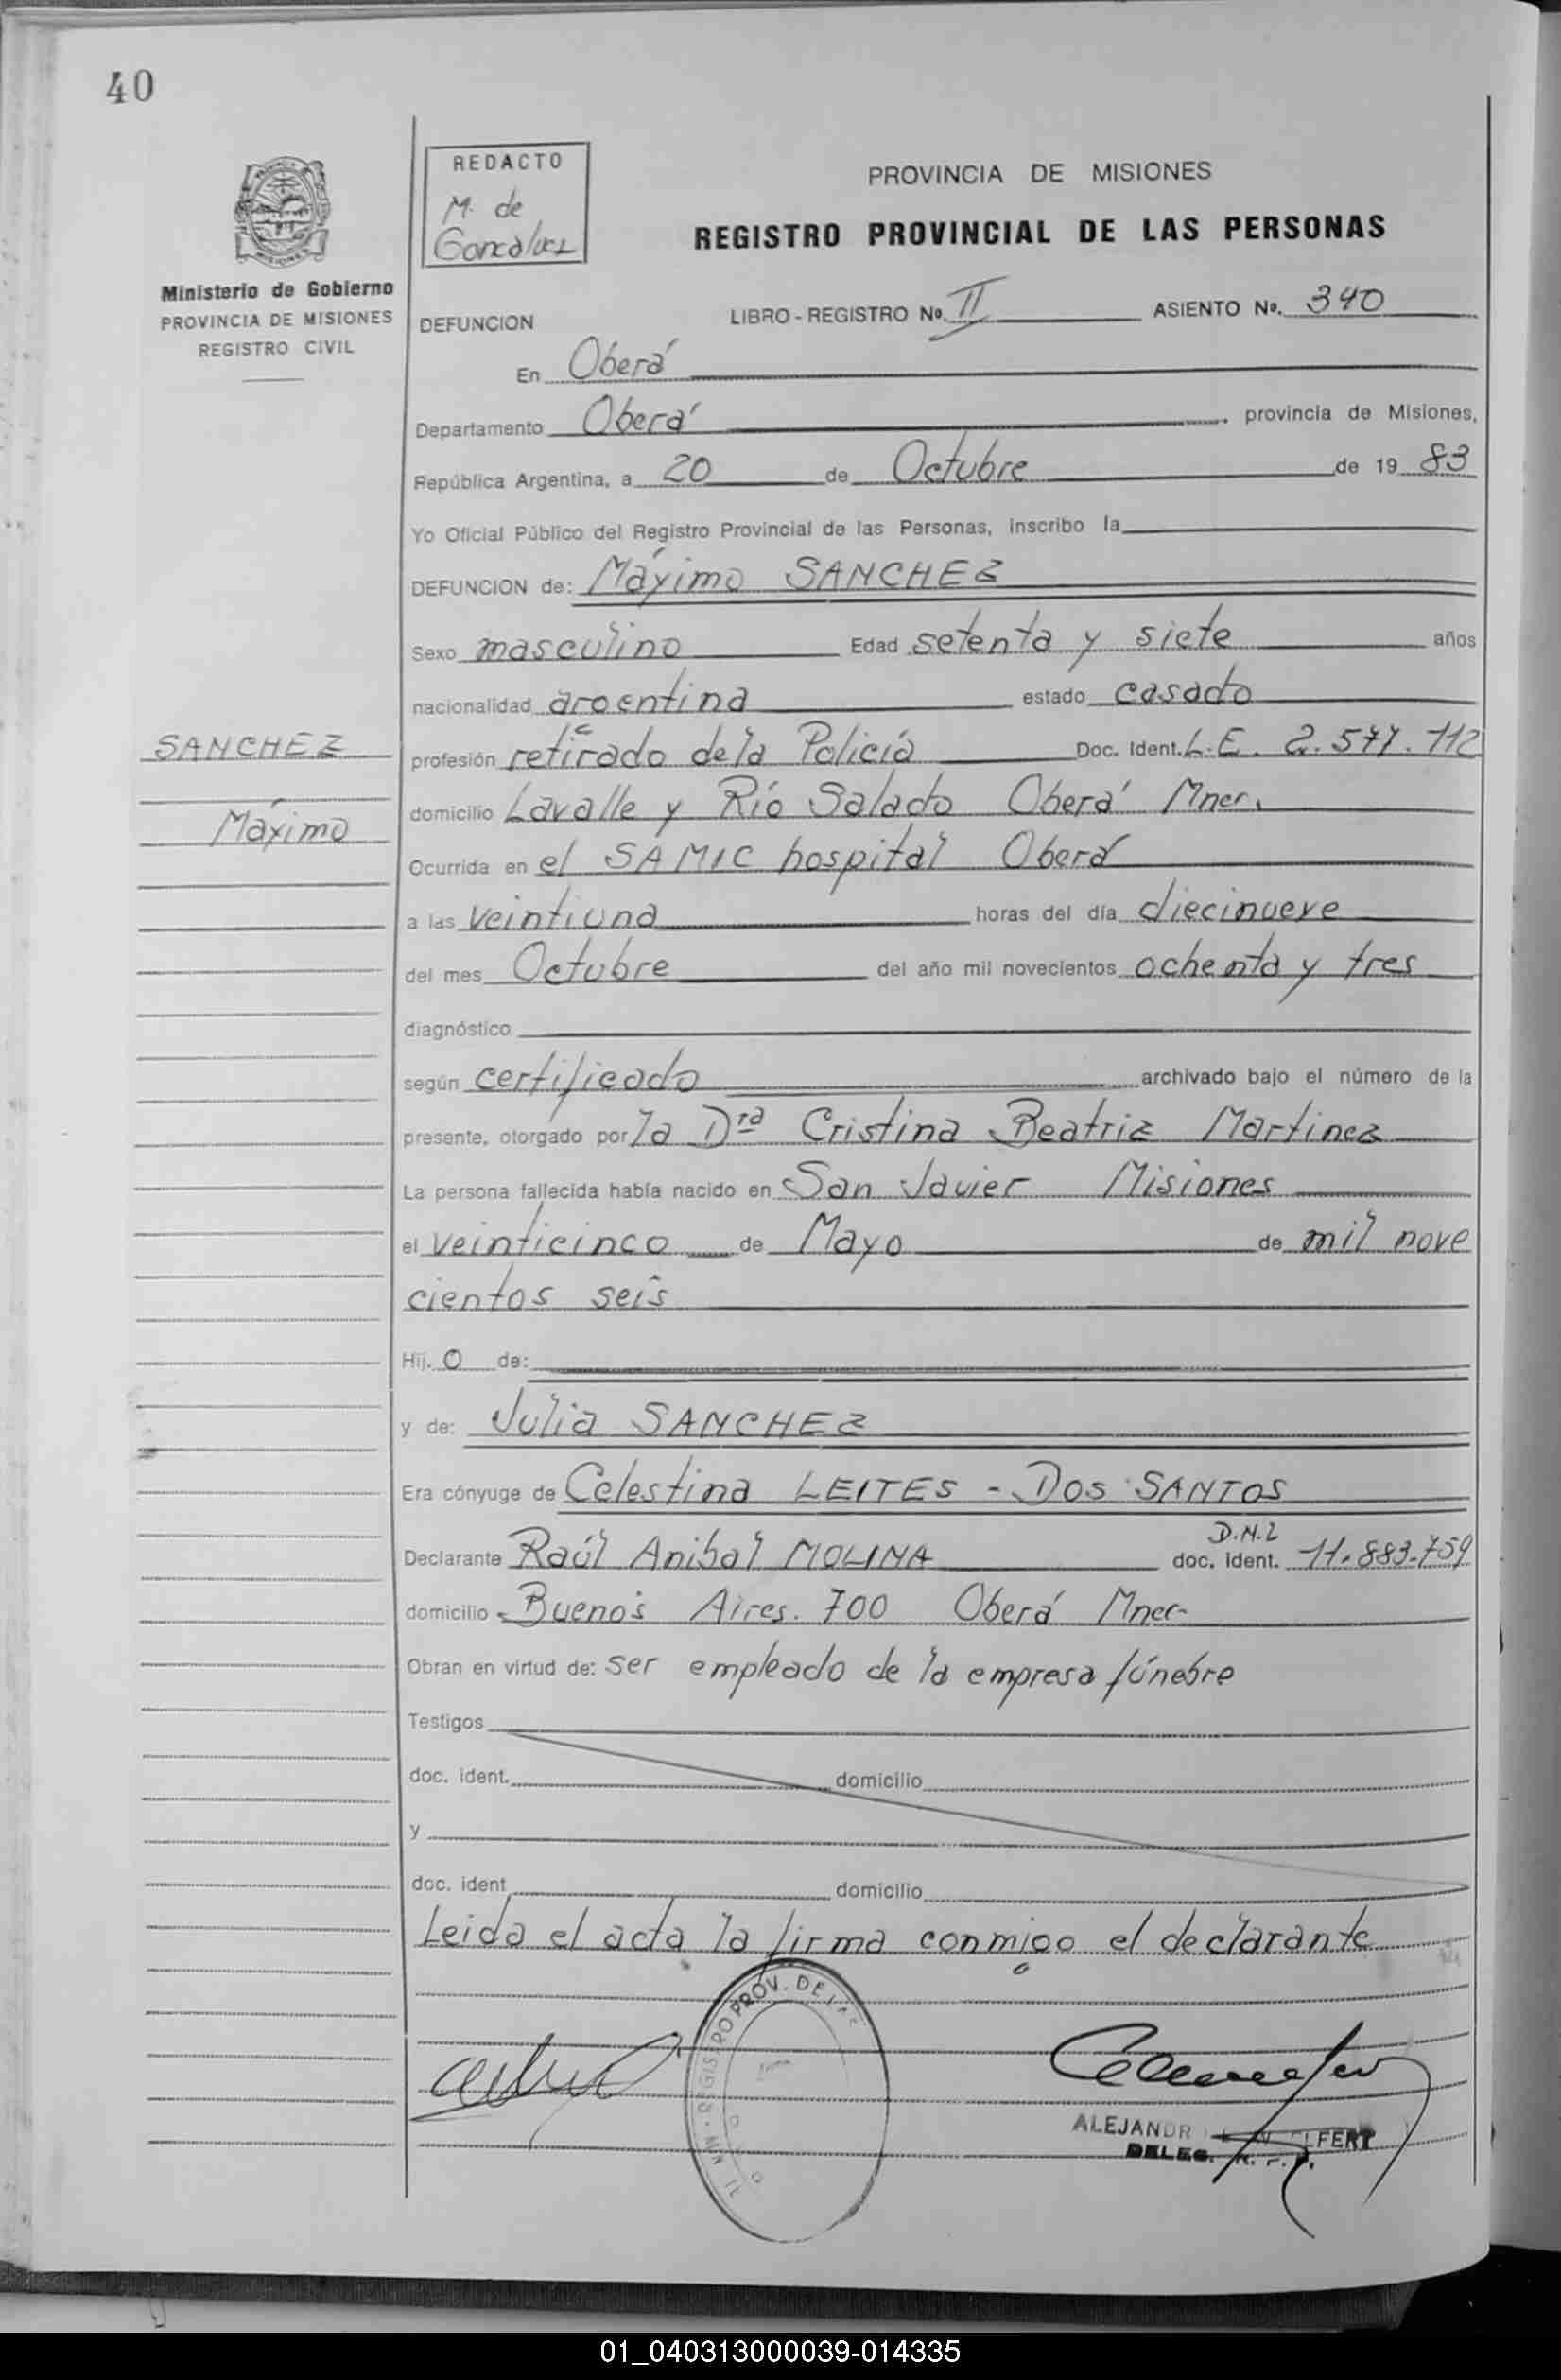 40
REDACTO
M. de
Goncalvez
PROVINCIA DE MISIONES
REGISTRO PROVINCIAL DE LAS PERSONAS
Ministerio de Gobierno
PROVINCIA DE MISIONES
REGISTRO CIVIL
DEFUNCION LIBRO - REGISTRO No. II ASIENTO No. 340
En Oberá
Departamento Oberá, provincia de Misiones,
República Argentina, a 20 de Octubre de 19 83
Yo Oficial Público del Registro Provincial de las Personas, inscribo la
DEFUNCION de: Máximo SANCHEZ
Sexo masculino Edad setenta y siete años
nacionalidad argentina estado casado
SANCHEZ
Máximo
profesión retirado de la Policía Doc. Ident. L.E. 2.577.112
domicilio Lavalle y Río Salado Oberá Mnes.
Ocurrida en el SAMIC hospital Oberá
a las veintiuna horas del día diecinueve
del mes Octubre del año mil novecientos ochenta y tres
diagnóstico
según certificado archivado bajo el número de la
presente, otorgado por la Dra Cristina Beatriz Martinez
La persona fallecida había nacido en San Javier Misiones
el veinticinco de Mayo de mil nove
cientos seis
Hij. o de:
y de: Julia SANCHEZ
Era cónyuge de Celestina LEITES - DOS SANTOS
D.N.I
Declarante Raúl Anibal MOLINA doc. ident. 11.883.759
domicilio Buenos Aires. 700 Oberá Mnes-
Obran en virtud de: ser empleado de la empresa fúnebre
Testigos
doc. ident. domicilio
y
doc. ident domicilio
Leida el acta la firma conmigo el declarante
REGISTRO PROV. DE LAS
ALEJANDR
DELEG. R. P. P.
01_040313000039-014335